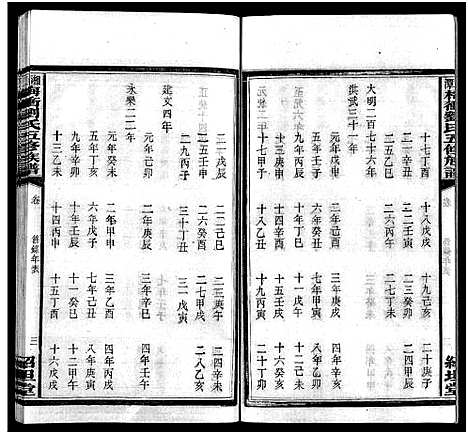 十七丁酉 十八戊戌 十九己亥 二十庚子
二一辛丑 二二壬寅 二三癸卯 二四甲辰
二五乙巳 二六丙午 二七丁未
大明二百七十六年
洪武三十一年
元年戊申 二年己酉 三年庚戌 四年辛亥
五年壬子 六年癸丑 七年甲寅 八年乙卯
九年丙辰 十年丁巳 十一戊午 十二己未
十三庚申 十四辛酉 十五壬戌 十六癸亥
十七甲子 十八乙丑 十九丙寅 二十丁卯
二一戊辰 二二己巳 二三庚午 二四辛未
二五壬申 二六癸酉 二七甲戌 二八乙亥
二九丙子 三十丁丑 三一戊寅
建文四年
元年己卯 二年庚辰 三年辛巳 四年壬午
永樂二二年
元年癸未 二年甲申 三年乙酉 四年丙戌
五年丁亥 六年戊子 七年己丑 八年庚寅
九年辛卯 十年壬辰 十一癸巳 十二甲午
十三乙未 十四丙申 十五丁酉 十六戊戌
劉氏五修族譜 卷 年表 三 堂